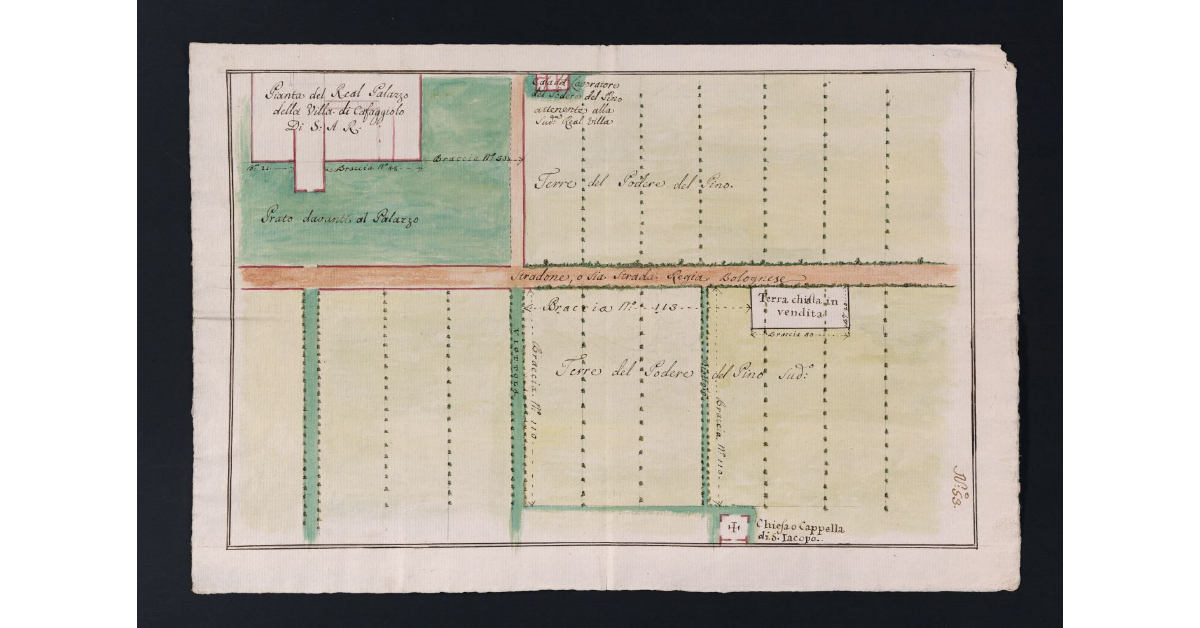 Pianta del Real Palazzo
della Villa di Cafaggiolo
Di S: A R:
Casa del Lavoratore
del Podere del Pino
attenente alla
Sud:ª Real Villa
Braccia Nº
Braccia Nº
Nº
Terre del Podere del Pino.
Prato davanti al Palazzo
Stradone, o sia Strada Regia Bolognese
Braccia Nº 113
Terra chiesta in
vendita
Braccia 50
Viottola
Braccia Nº 110
Terre del Podere del Pino Sud:º
Viottola
Braccia Nº 110
Nº 53.
Chiesa o Cappella
di S. Iacopo.